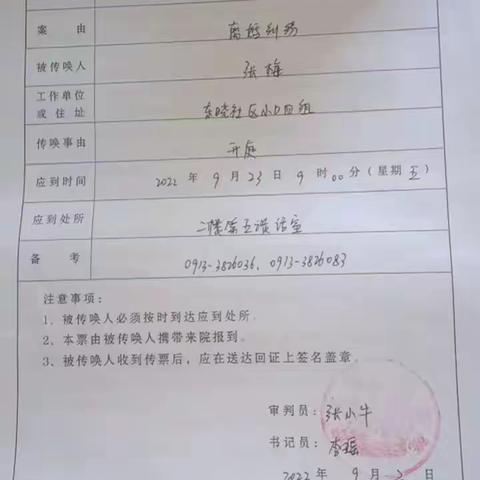 案由 离婚纠纷
被传唤人 张梅
工作单位
或住址 东晓社区小口巴组
传唤事由 开庭
应到时间 2022年9月23日9时00分(星期五)
应到处所 二楼第五谈话室
备考 0913-3826036、0913-3826083
注意事项:
1、被传唤人必须按时到达应到处所。
2、本票由被传唤人携带来院报到。
3、被传唤人收到传票后,应在送达回证上签名盖章。
审判员:张小牛
书记员:李瑶
2022年9月2日